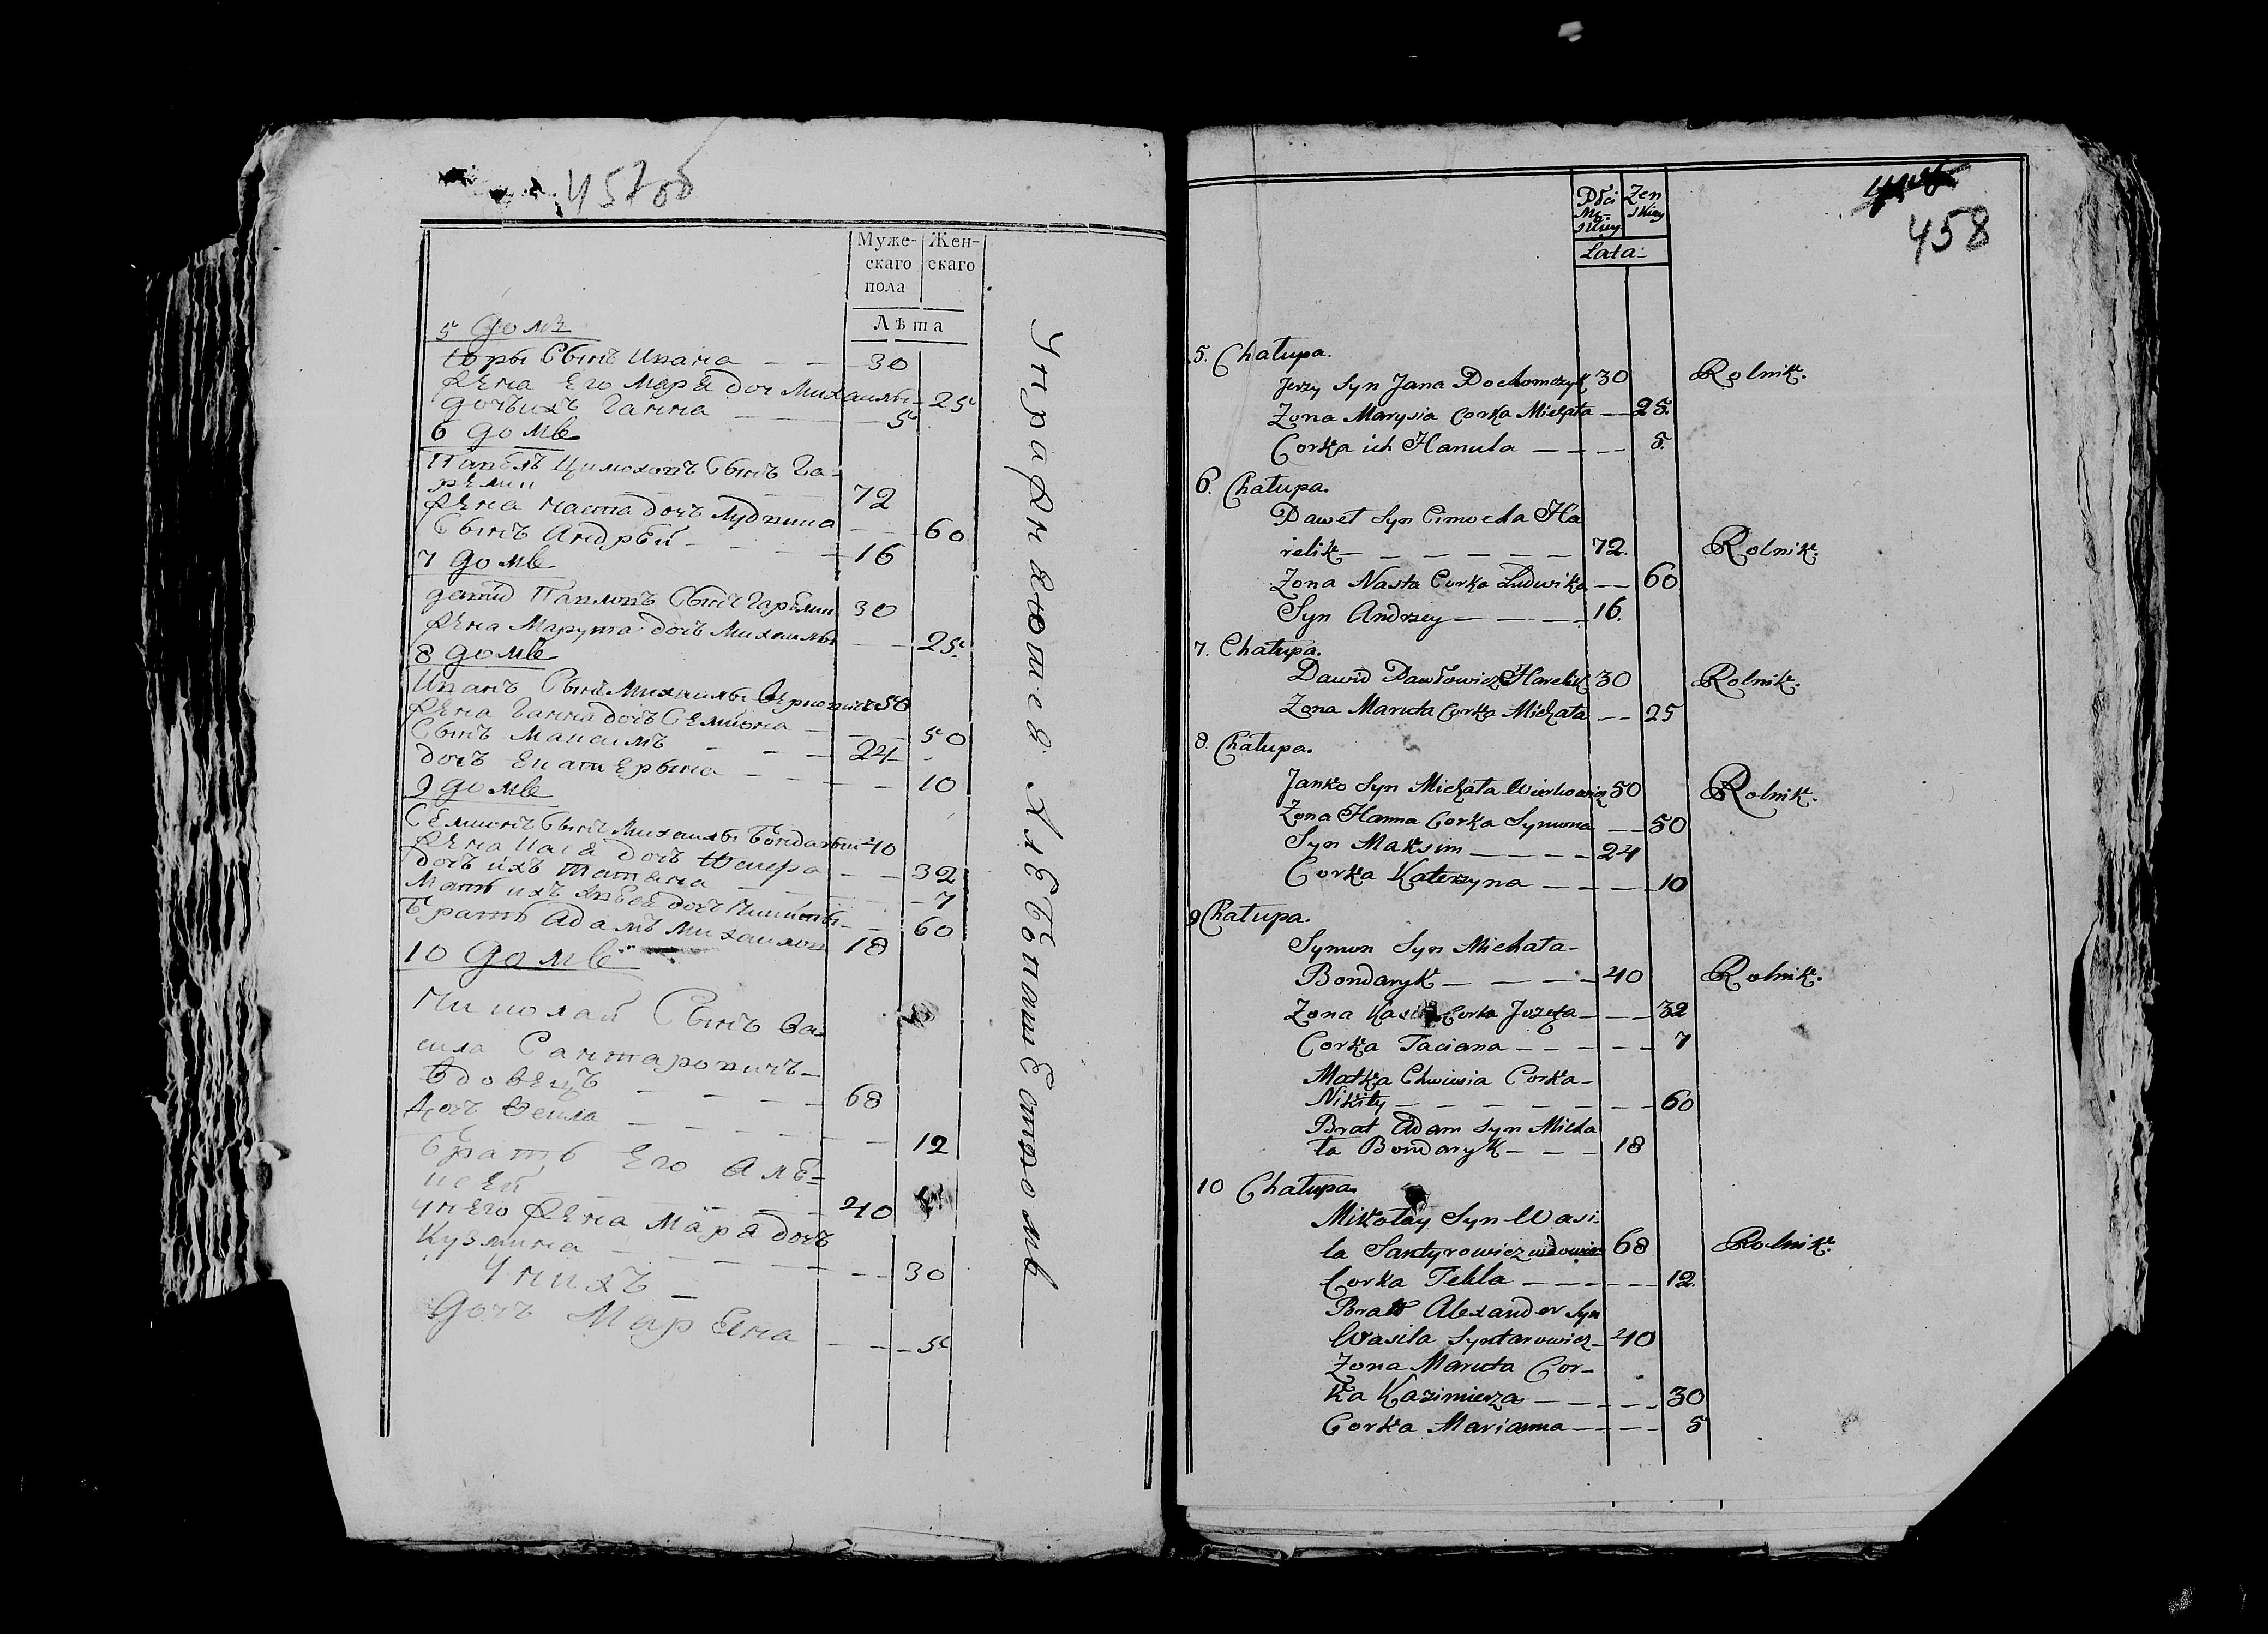 457об
Муже- Жен-
скаго скаго
пола
Лѣта
5 домъ
Юры Сынъ Ивана — — 30
Жена Его Маря доч Михаилы — 25
дочь ихъ Ганна — 5
6 домъ
Павелъ Цимоховъ Сынъ Га-
релик 72
Жена Наста дочь Лудвика — 60
Сынъ Андрей — — 16
7 домъ
давид Павловъ Сынъ Гарелик 30
Жена Марута дочь Михаилы — 25
8 домъ
Иванъ Сынъ Михаилы 50
Жена Ганна дочь Семиона — 50
Сынъ Максимъ — — 24
дочь Екатерына — — 10
9 домъ
Семионъ Сынъ Михаилы Бондарыкъ 40
Жена Кася дочь — — 32
дочь ихъ Татяна — — 7
Мать ихъ дочь Никиты — 60
Братъ Адамъ Михаилов 18
10 домъ
Николай Сынъ Ва-
сила Сантаровичъ
Вдовецъ — — — 68
Дочь Текла — — — 12
Братъ Его Алѣ-
ксей — — 40
у него Жена Маря дочь
Кузмина — — — 30
У нихъ —
дочь Марьяна — — 5
Упражняются хлебопашествомъ
458
Płci Żen
Mę- skiey
skiey
Lata
5. Chałupa.
Jerzy Syn Jana Dochomczyk 30 Rolnik.
Zona Marysia Corka Michała — 25.
Corka ich Hanula — — — 5.
6. Chałupa.
Paweł Syn Cimocha Ha
relik — — — — — — 72. Rolnik.
Zona Nasta Corka Ludwika — 60
Syn Andrzey — — — — 16.
7. Chałupa.
Dawid Pawłowicz Harelik 30 Rolnik.
Zona Maruta Corka Michała — — 25
8. Chałupa.
Janko Syn Michała 50 Rolnik.
Zona Hanna Corka Symona — — 50
Syn Maksim — — — — 24
Corka Katerzyna — — — — 10
9 Chałupa.
Symon Syn Michała —
Bondaryk — — — — 40 Rolnik.
Zona Kasia Corka Jozefa — — — 32
Corka Taciana — — — — — 7
Matka Chwiesia Corka —
Nikity — — — — — — — 60
Brat Adam Syn Micha
ła Bondaryk — — — 18
10 Chałupa.
Mikołay Syn Wasi-
la Santyrowicz wdowiec 68 Rolnik.
Corka Tekla — — — — — 12.
Brat Alexander Syn
Wasila Syntarowicz — 40
Zona Maruta Cor-
ka Kazimierza — — — — — 30
Corka Marianna — — — 5